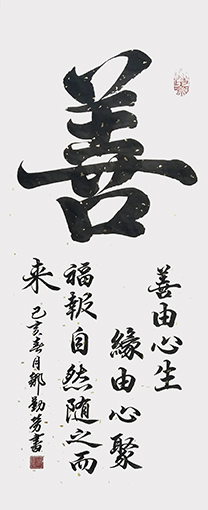 善
善由心生
緣由心聚
福報自然随之而
来
己亥春月鄒勤芳書